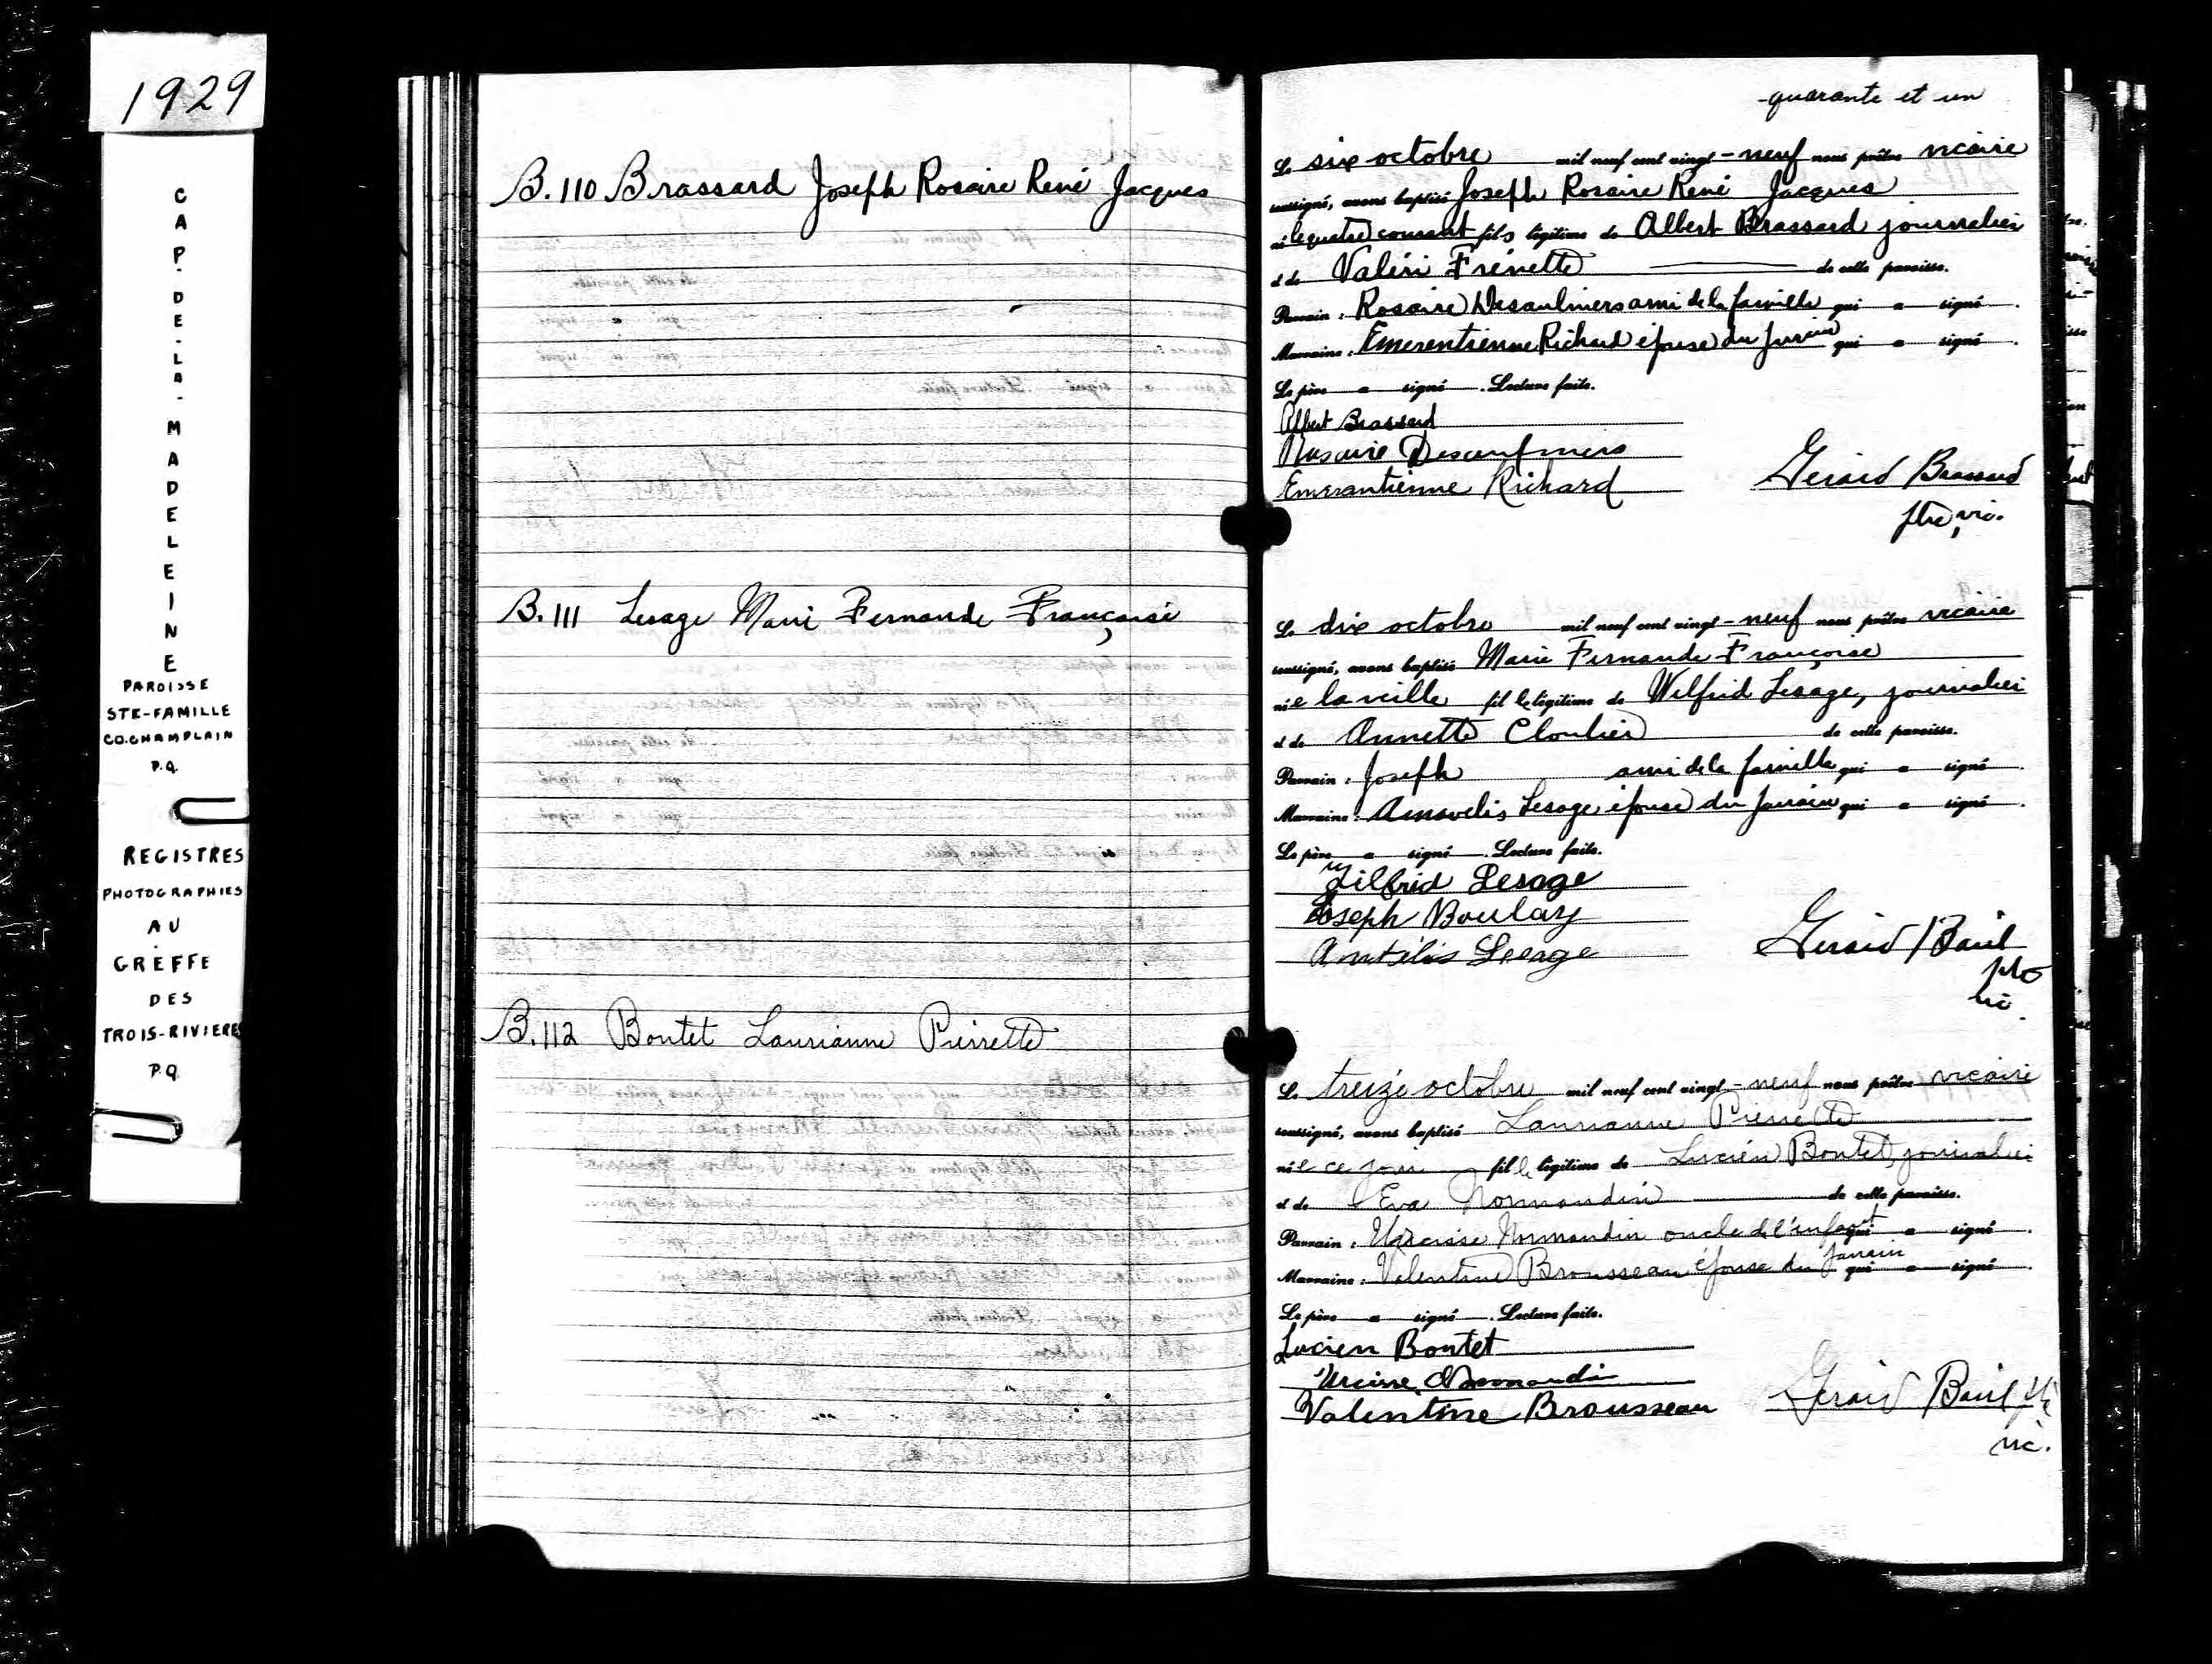 1929
CAP-DE-LA-MADELEINE
PAROISSE
STE-FAMILLE
CO. CHAMPLAIN
P.Q.
REGISTRES
PHOTOGRAPHIES
AU
GREFFE
DES
TROIS-RIVIERES
P.Q.
B. 110 Brassard Joseph Rosaire René Jacques
B. 111 Lesage Marie Fernande Françoise
B. 112 Boutet Laurianne Pierrette
quarante et un
Le six octobre mil neuf cent vingt-neuf nous prêtre vicaire
soussigné, avons baptisé Joseph Rosaire René Jacques
né le quatre courant fils légitime de Albert Brassard journalier
et de Valéri Frenette de cette paroisse.
Parrain : Rosaire Desaulniers ami de la famille qui a signé.
Marraine : Emerentienne Richard épouse du parrain qui a signé.
Le père a signé. Lecture faite.
Albert Brassard
Rosaire Desaulniers
Emerantienne Richard
Gerard Brassard
ptre, vic.
Le dix octobre mil neuf cent vingt-neuf nous prêtre vicaire
soussigné, avons baptisé Marie Fernande Françoise
née la veille fille légitime de Wilfrid Lesage, journalier
et de Annette Cloutier de cette paroisse.
Parrain : Joseph ami de la famille qui a signé.
Marraine : Lesage épouse du parrain qui a signé.
Le père a signé. Lecture faite.
Wilfrid Lesage
Joseph Boulay
Lesage
Gerard
ptre
vic.
Le treize octobre mil neuf cent vingt-neuf nous prêtre vicaire
soussigné, avons baptisé Laurianne Pierrette
née ce jour fille légitime de Lucien Boutet, journalier
et de Eva Normandin de cette paroisse.
Parrain : Narcisse Normandin oncle de l'enfant qui a signé.
Marraine : Valentine Brousseau épouse du parrain qui a signé.
Le père a signé. Lecture faite.
Lucien Boutet
Normandin
Valentine Brousseau
Gerard
vic.